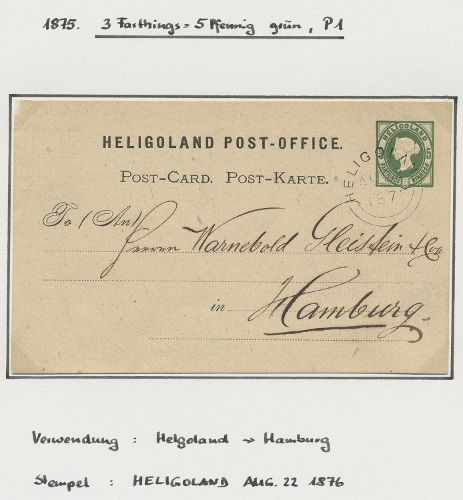 1875. 3 Farthings = 5 Pfennig grün, P1
HELIGOLAND POST-OFFICE.
HELIGOLAND
POST-CARD. POST-KARTE.
HELIGO
To / An
Herren Warnebold Gleistein & Co.
in Hamburg.
Verwendung : Helgoland → Hamburg
Stempel : HELIGOLAND AUG. 22 1876